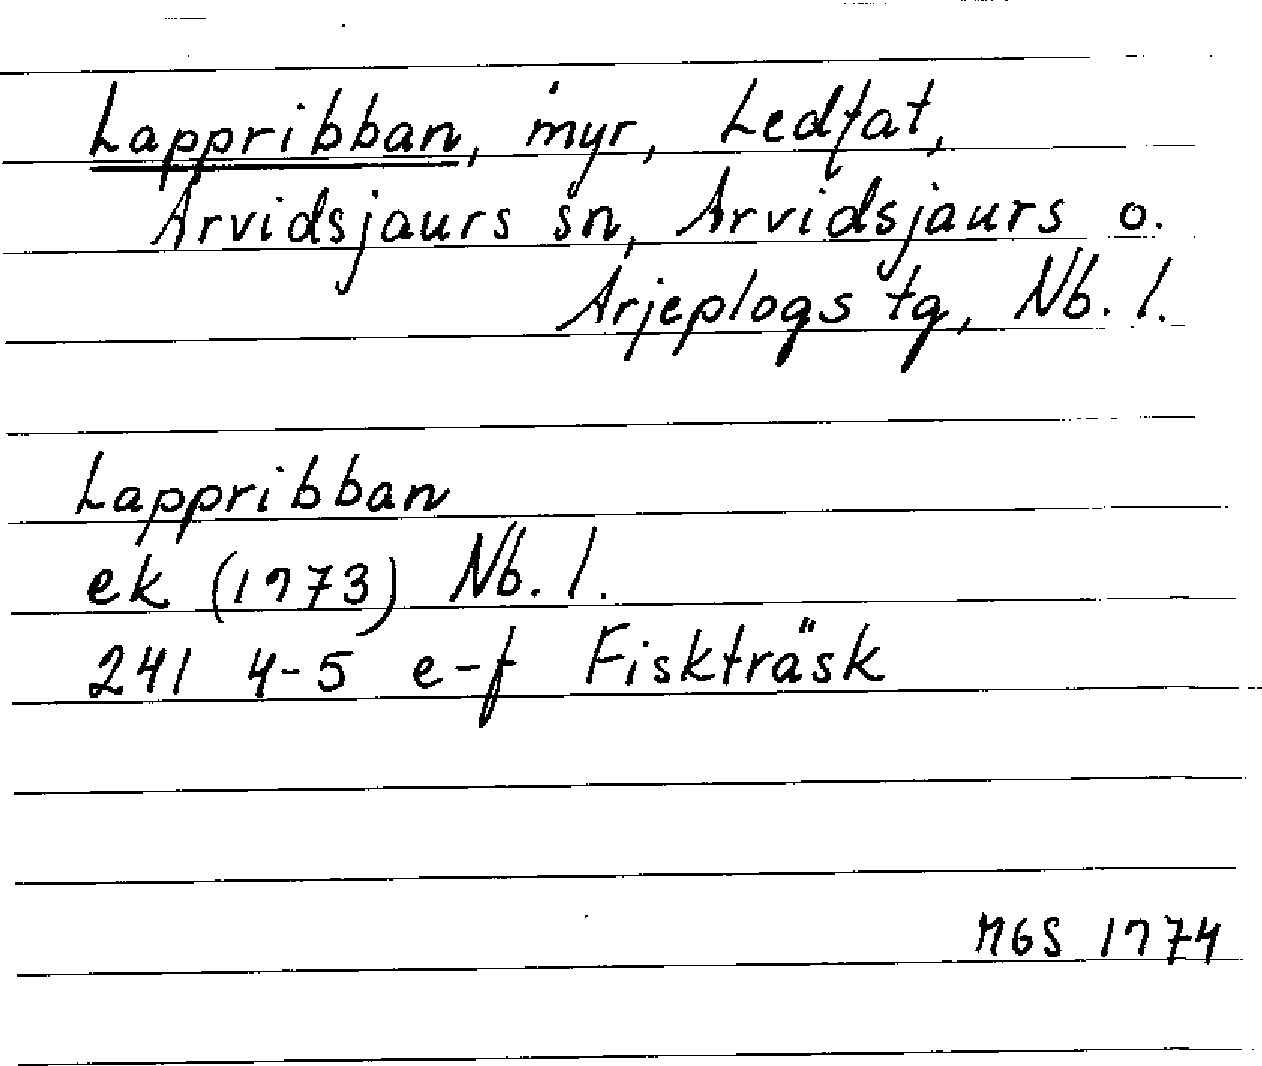 Lappribban, myr, Ledfat,
Arvidsjaurs sn, Arvidsjaurs o.
Arjeplogs tg, Nb. l.
Lappribban
ek (1973) Nb. l.
241 4-5 e-f Fiskträsk
MGS 1974